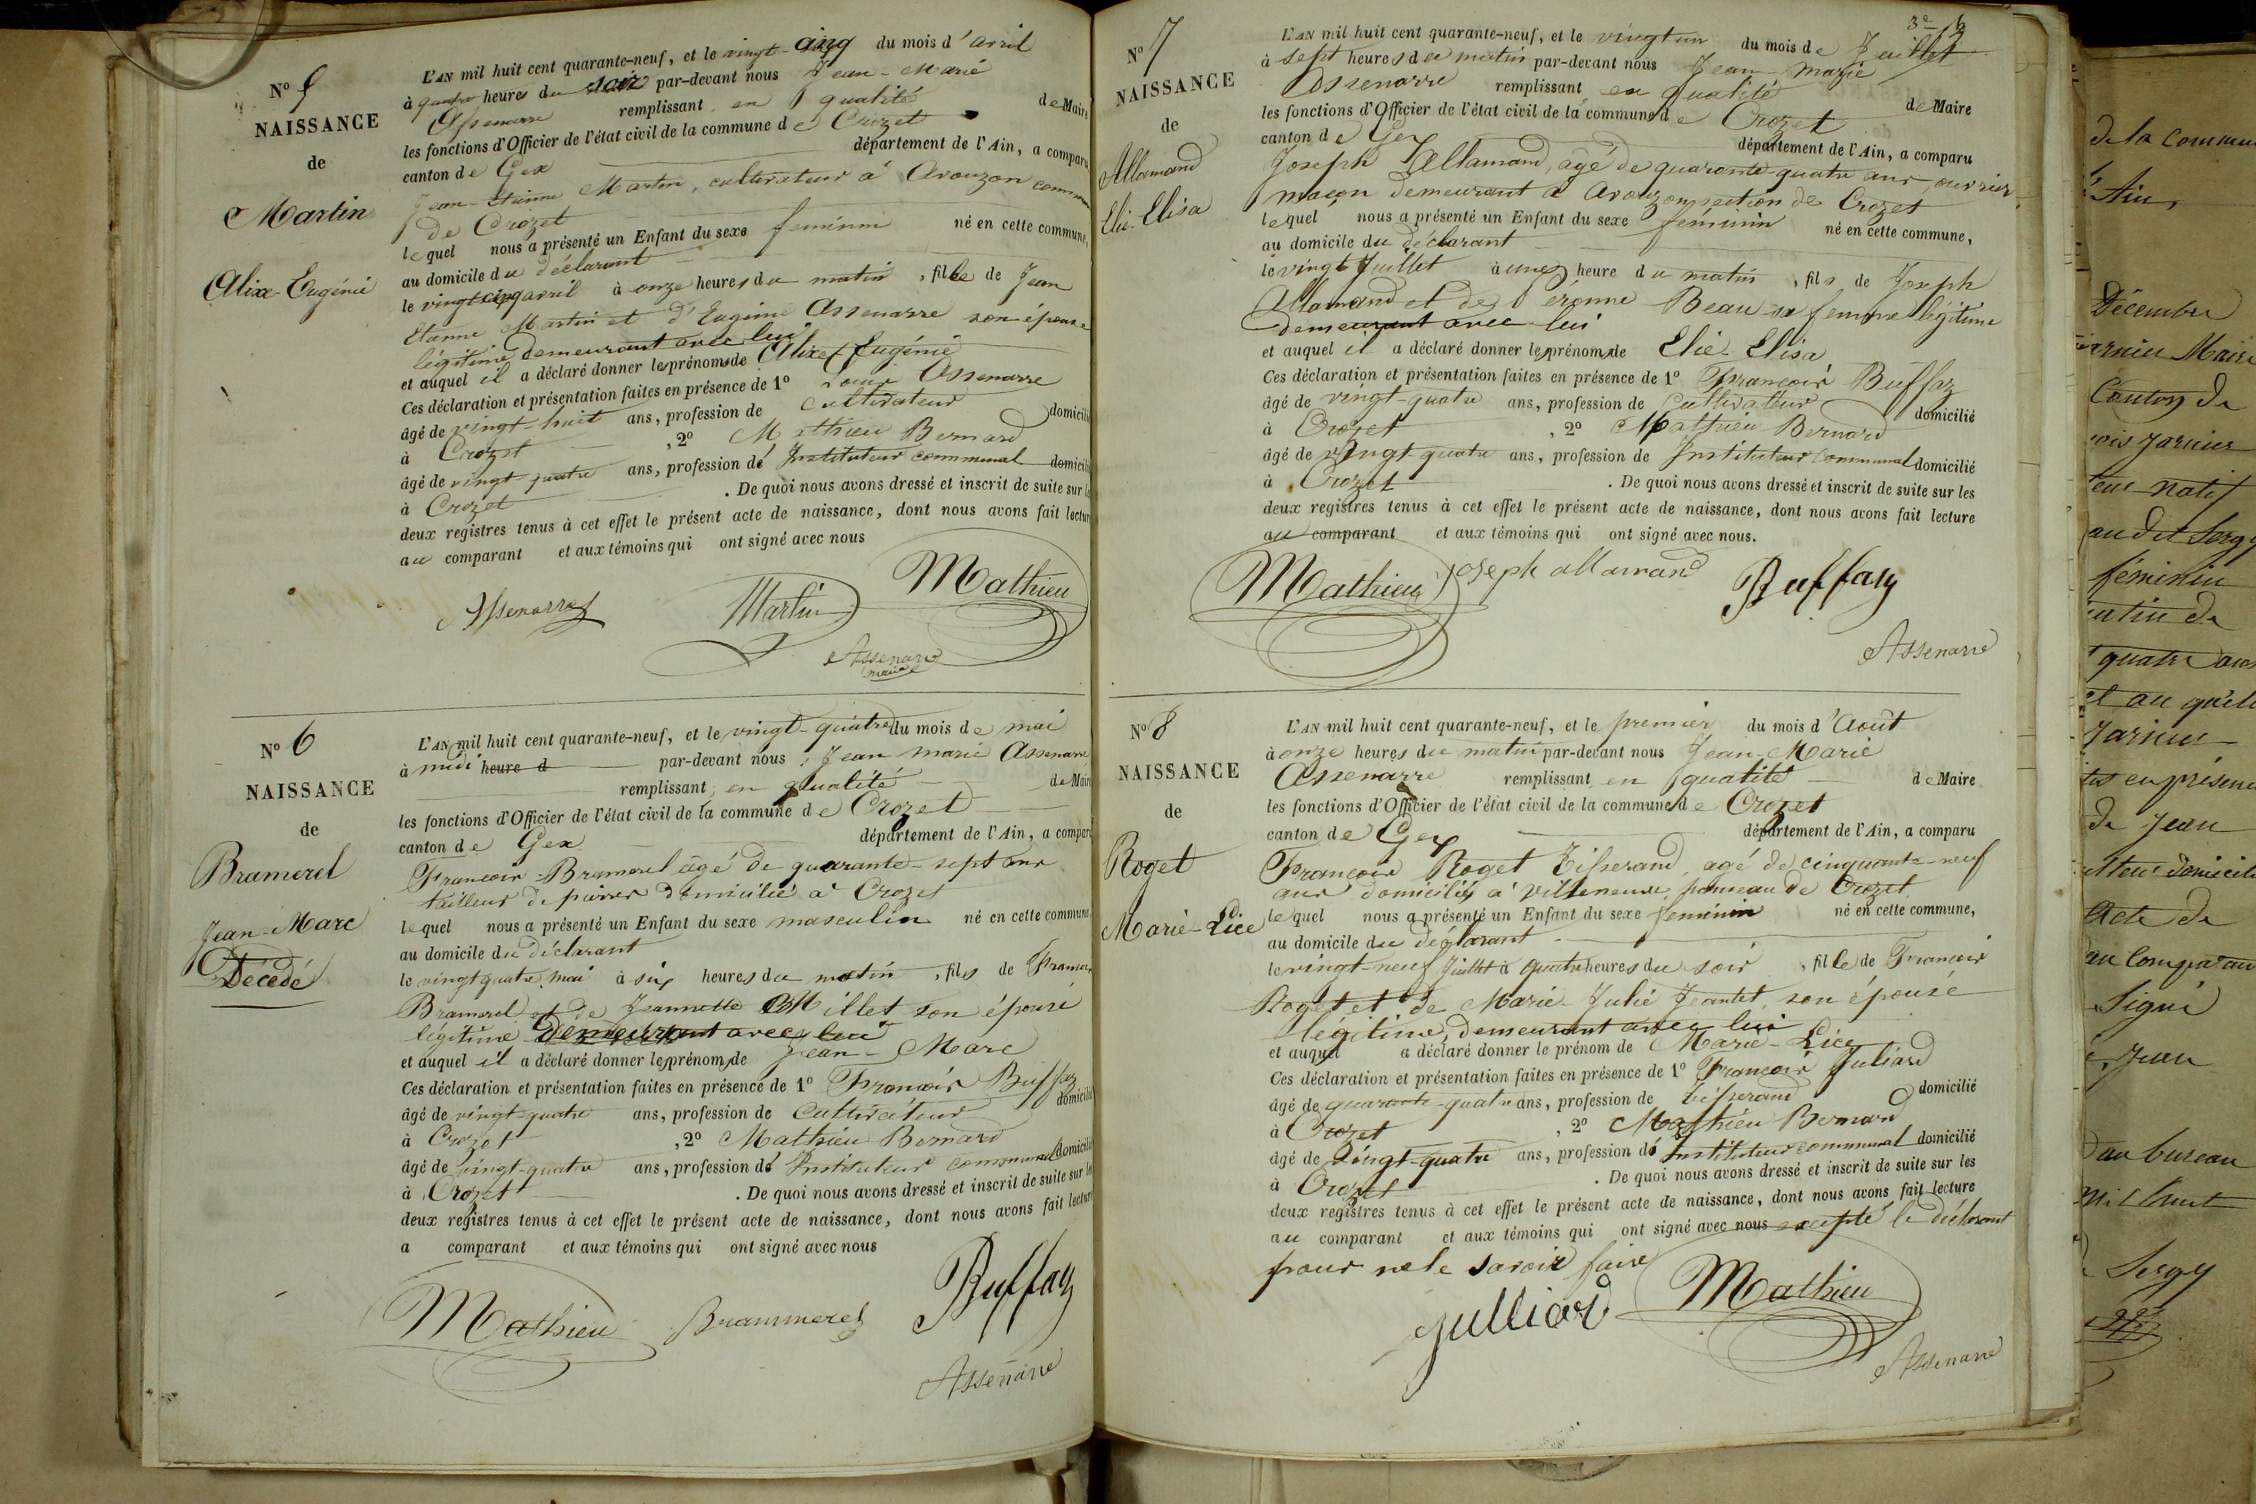 N° 5
NAISSANCE
de
Martin
Alix-Eugénie
L'AN mil huit cent quarante-neuf, et le vingt-cinq du mois d'avril
à quatre heures du soir par-devant nous Jean-Marie
Assenarre remplissant en qualité de Maire
les fonctions d'Officier de l'état civil de la commune de Crozet
canton de Gex département de l'Ain, a comparu
Jean-Etienne Martin, cultivateur à Avouzon commune
de Crozet
lequel nous a présenté un Enfant du sexe féminin né en cette commune,
au domicile du déclarant
le vingt cinq avril à onze heures du matin, fille de Jean
Etienne Martin et d'Eugénie Assenarre son épouse
légitime demeurant avec lui
et auquel il a déclaré donner les prénoms de Alix Eugénie
Ces déclaration et présentation faites en présence de 1° Louis Assenarre
âgé de vingt-huit ans, profession de cultivateur domicilié
à Crozet, 2° Mathieu Bernard
âgé de vingt-quatre ans, profession d' Instituteur communal domicilié
à Crozet. De quoi nous avons dressé et inscrit de suite sur les
deux registres tenus à cet effet le présent acte de naissance, dont nous avons fait lecture
au comparant et aux témoins qui ont signé avec nous
Assenarre Martin Mathieu
Assenarre
maire
N° 6
NAISSANCE
de
Bramerel
Jean-Marc
Décédé
L'AN mil huit cent quarante-neuf, et le vingt-quatre du mois de mai
à midi heure d par-devant nous Jean marie Assenarre
remplissant en qualité de Maire
les fonctions d'Officier de l'état civil de la commune de Crozet
canton de Gex département de l'Ain, a comparu
François Bramerel âgé de quarante-sept ans
tailleur de pierres domicilié à Crozet
lequel nous a présenté un Enfant du sexe masculin né en cette commune
au domicile du déclarant
le vingt quatre mai à six heures du matin, fils de François
Bramerel et de Jeannette Millet son épouse
légitime demeurant avec lui
et auquel il a déclaré donner les prénoms de Jean-Marc
Ces déclaration et présentation faites en présence de 1° François Buffaz
âgé de vingt-quatre ans, profession de Cultivateur domicilié
à Crozet, 2° Mathieu Bernard
âgé de vingt-quatre ans, profession d' Instituteur communal domicilié
à Crozet. De quoi nous avons dressé et inscrit de suite sur les
deux registres tenus à cet effet le présent acte de naissance, dont nous avons fait lecture
a comparant et aux témoins qui ont signé avec nous
Mathieu Brammerel Buffaz
Assenarre
N° 7
NAISSANCE
de
Allamand
Elie-Elisa
L'AN mil huit cent quarante-neuf, et le vingt un du mois de Juillet
à sept heures du matin par-devant nous Jean-Marie
Assenarre remplissant en qualité de Maire
les fonctions d'Officier de l'état civil de la commune de Crozet
canton de Gex département de l'Ain, a comparu
Joseph Allamand, âgé de quarante-quatre ans, ouvrier
maçon demeurant à Avouzon section de Crozet
lequel nous a présenté un Enfant du sexe féminin né en cette commune,
au domicile du déclarant
le vingt Juillet à une heure du matin, fils de Joseph
Allamand et de Péronne Beau sa femme légitime
demeurant avec lui
et auquel il a déclaré donner les prénoms de Elie-Elisa
Ces déclaration et présentation faites en présence de 1° François Buffaz
âgé de vingt-quatre ans, profession de Cultivateur domicilié
à Crozet, 2° Mathieu Bernard
âgé de vingt quatre ans, profession de Instituteur Communal domicilié
à Crozet. De quoi nous avons dressé et inscrit de suite sur les
deux registres tenus à cet effet le présent acte de naissance, dont nous avons fait lecture
au comparant et aux témoins qui ont signé avec nous.
Mathieu Joseph allamand Buffaz
Assenarre
N° 8
NAISSANCE
de
Roget
Marie-Lice
L'AN mil huit cent quarante-neuf, et le premier du mois d'Août
à onze heures du matin par-devant nous Jean-Marie
Assenarre remplissant en qualité de Maire
les fonctions d'Officier de l'état civil de la commune de Crozet
canton de Gex département de l'Ain, a comparu
François Roget Tisserand, agé de cinquante-neuf
ans domicilié à Villeneuve, hameau de Crozet
lequel nous a présenté un Enfant du sexe féminin né en cette commune,
au domicile du déclarant
le vingt-neuf Juillet à quatre heures du soir, fille de François
Roget et de Marie-Julie Jeantet son épouse
légitime, demeurant avec lui
et auquel a déclaré donner le prénom de Marie-Lice
Ces déclaration et présentation faites en présence de 1° François Juliard
âgé de quarante-quatre ans, profession de tisserand domicilié
à Crozet, 2° Mathieu Bernard
âgé de Vingt-quatre ans, profession d' Instituteur communal domicilié
à Crozet. De quoi nous avons dressé et inscrit de suite sur les
deux registres tenus à cet effet le présent acte de naissance, dont nous avons fait lecture
au comparant et aux témoins qui ont signé avec nous excepté le déclarant
pour ne le savoir faire
Julliard Mathieu
Assenarre
de la commune
l'Ain,
Décembre
Maire
Canton de
natif
au dit Sergy
féminin
quatre ans
et au quel
en présence
de Jean
domicilié
Acte de
au Comparant
Signé
Jean
au bureau
mil huit
Sergy